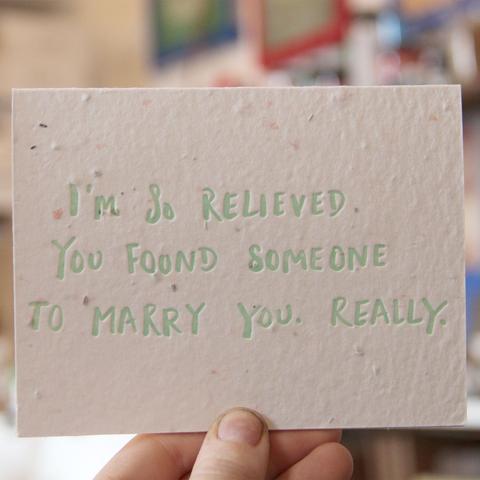 I'M SO RELIEVED.
YOU FOUND SOMEONE
TO MARRY YOU. REALLY.